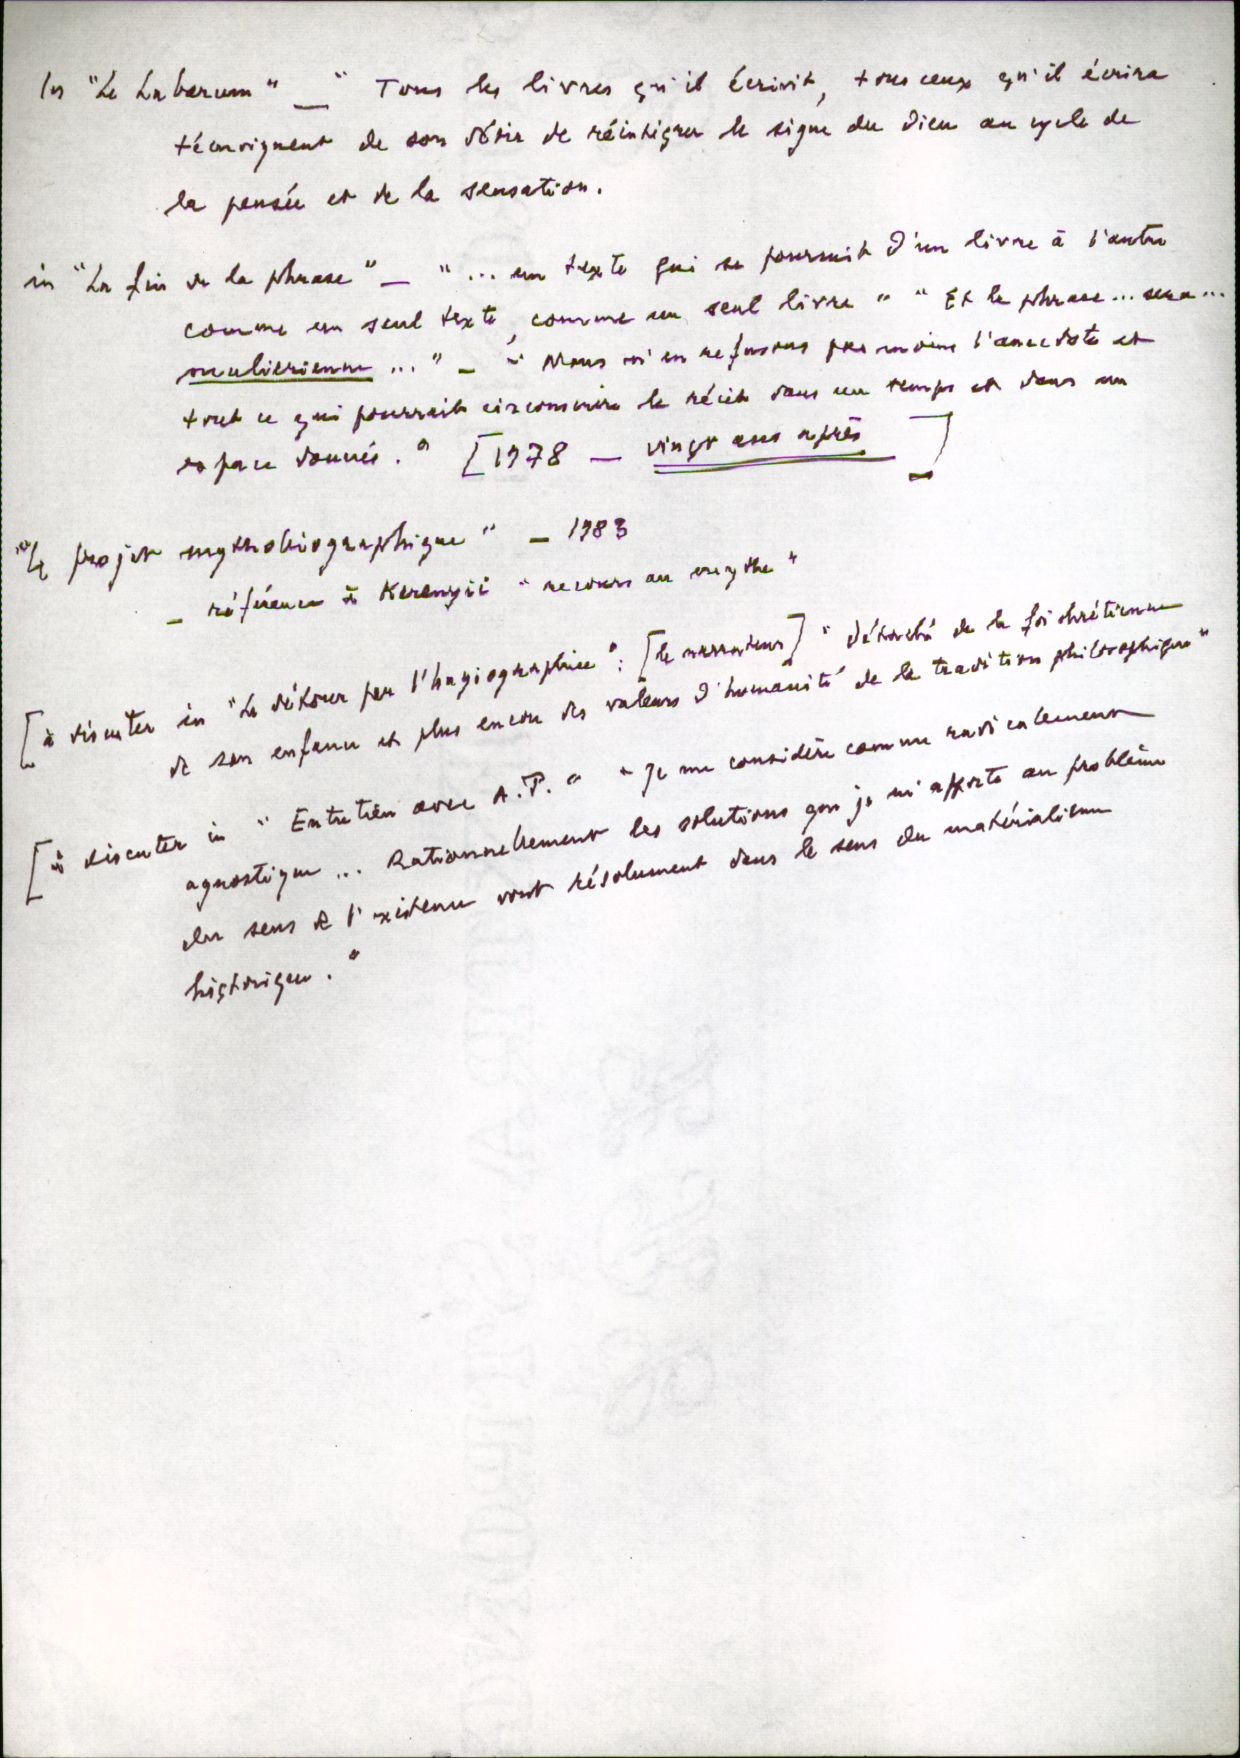 In "Le Labarum" — " Tous les livres qu'il écrivit, tous ceux qu'il écrira
témoignent de son désir de réintégrer le signe du Dieu au cycle de
la pensée et de la sensation.
in "La fin de la phrase" — "... un texte qui se poursuit d'un livre à l'autre
comme un seul texte, comme un seul livre " " Et la phrase ... sera ...
oulierienne ..." — " Nous n'en refusons pas moins l'anecdote et
tout ce qui pourrait circonscrire le récit dans un temps et dans un
espace donnés. " [1978 — vingt ans après ]
"Le projet mythobiographique " — 1983
— référence à Kerenyii " recours au mythe "
[à discuter in "Le détour par l'hagiographie" : [le narrateur] " détaché de la foi chrétienne
de son enfance et plus encore des valeurs d'humanité de la tradition philosophique"
[à discuter in " Entretien avec A.P. " " Je me considère comme radicalement
agnostique ... Rationnellement les solutions que je m'apporte au problème
du sens de l'existence vont résolument dans le sens du matérialisme
historique. "